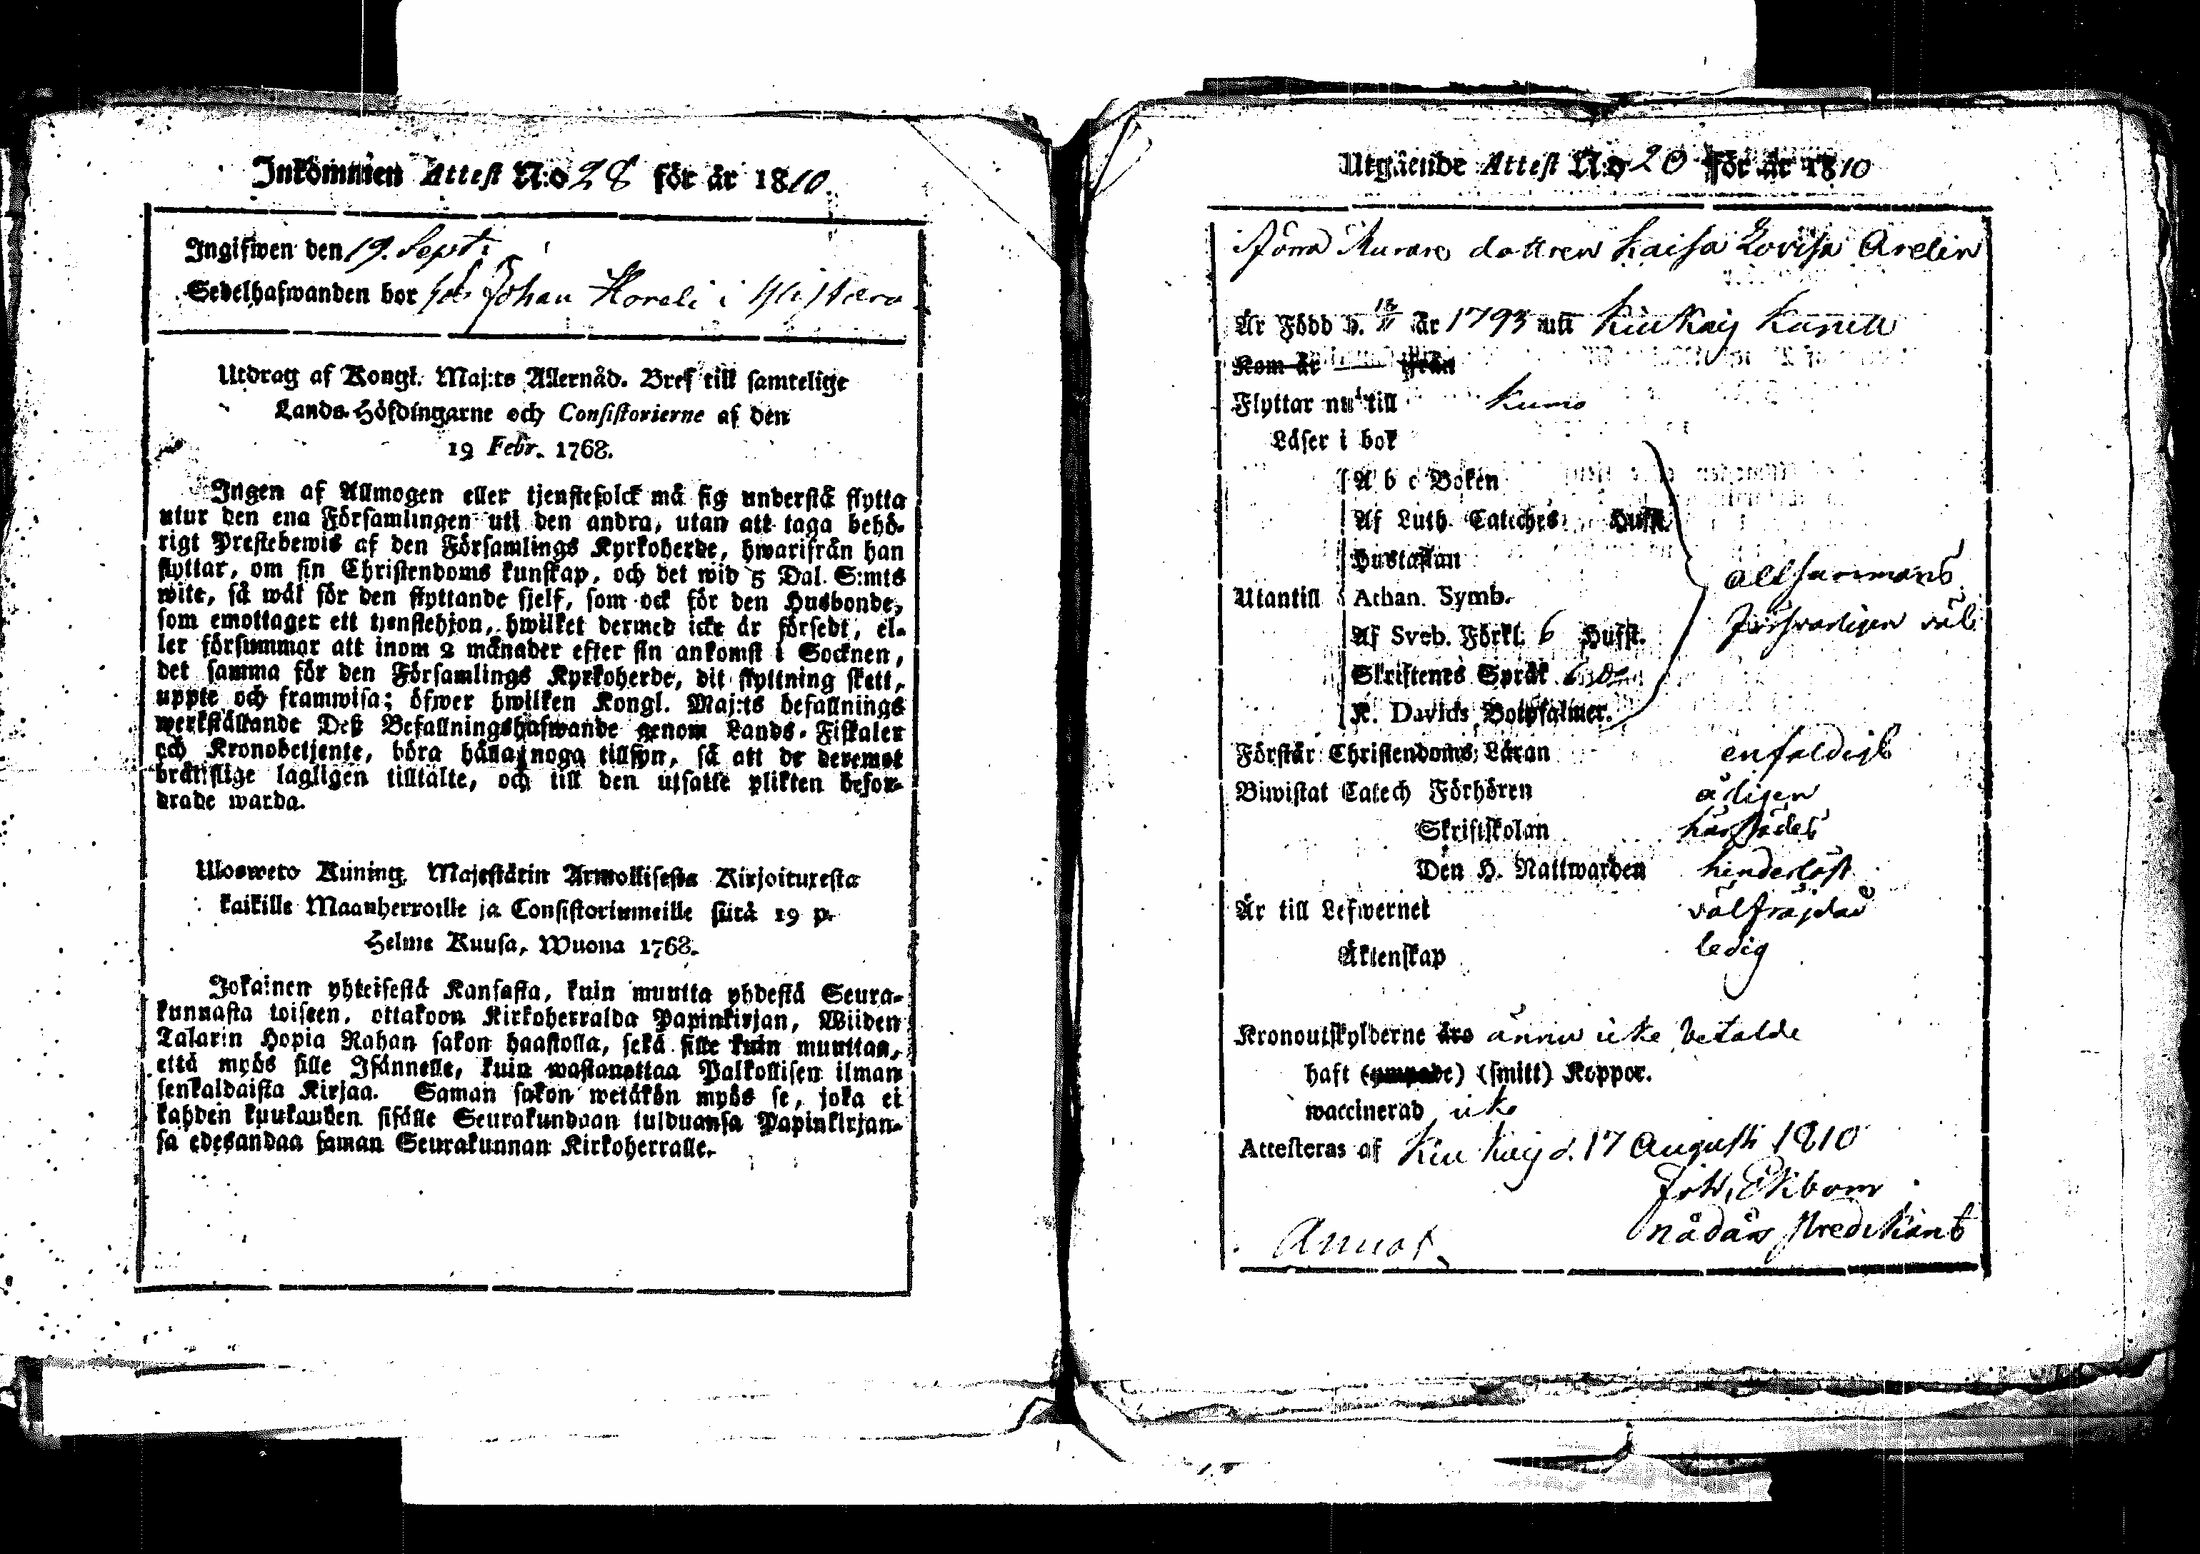 Inkommen Attest N:o 28 för år 1810.
Ingifwen den 19. Sept:
Sedelhafwanden bor hos Johan Horeli i
Utdrag af Kongl. Maj:ts Allernåd. Bref till samtelige
Lands-Höfdingarne och Consistorierne af den
19 Febr. 1768.
Ingen af Allmogen eller tjenstefolck må sig understå flytta
utur den ena Församlingen uti den andra, utan att taga behö-
rigt Prestebewis af den Församlings Kyrkoherde, hwarifrån han
flyttar, om sin Christendoms kunskap, och det wid 5 Dal. S:mts
wite, så wäl för den flyttande sjelf, som ock för den Husbonde,
som emottager ett tjenstehjon, hwilket dermed icke är försedt, el-
ler försummar att inom 2 månader efter sin ankomst i Socknen,
det samma för den Församlings Kyrkoherde, dit flyttning skett,
uppte och framwisa; öfwer hwilken Kongl. Maj:ts befallnings
werkställande Deß Befallningshafwande genom Lands-Fiskaler
och Kronobetjente, böra hålla noga tillsyn, så att de deremot
bråtslige lagligen tilltalte, och till den utsatte plikten befor-
drade warda.
Ulosweto Kuning. Majestätin Armollisesta Kirjoituxesta
kaikille Maanherroille ja Consistoriumeille siitä 19 p.
Helme Kuusa, Wuona 1768.
Jokainen yhteisestä Kansasta, kuin muutta yhdestä Seura-
kunnasta toiseen, ottakoon Kirkoherralda Papinkirjan, Wiiden
Talarin Hopia Rahan sakon haastolla, sekä sille kuin muuttaa,
että myös sille Isännelle, kuin wastanottaa Palkollisen ilman
senkaldaista Kirjaa. Saman sakon wetäkön myös se, joka ei
kahden kuukauden sisälle Seurakundaan tulduansa Papinkirjan-
sa edesandaa saman Seurakunnan Kirkoherralle.
Utgående Attest N:o 20 för år 1810
Förra Murare dottren Kaisa Lovisa Arelin
År Född d. år 1793 uti Kiukais
Kom år ifrån
Flyttar nu till Kumo
Läser i bok
A b c Boken
Af Luth. Cateches: Hufst.
Hustaflan
Utantill Athan. Symb.
Af Sveb. Förkl. 6 Hufst.
Skriftenes Språk
K. Davids Botpsalmer.
allsammans
försvarligen väl
Förstår Christendoms Läran enfaldigt
Biwistat Catech Förhören årligen
Skriftskolan härstädes
Den H. Nattwarden hinderlöst
Är till Lefwernet välfräjdad
Äktenskap ledig
Kronoutskylderne äro ännu icke betalde
haft (ympade) (smitt) Koppor.
waccinerad icke
Attesteras af Kiukais d. 17 Augusti 1810
Joh. Ekbom
nådårs Predikant
Annot.